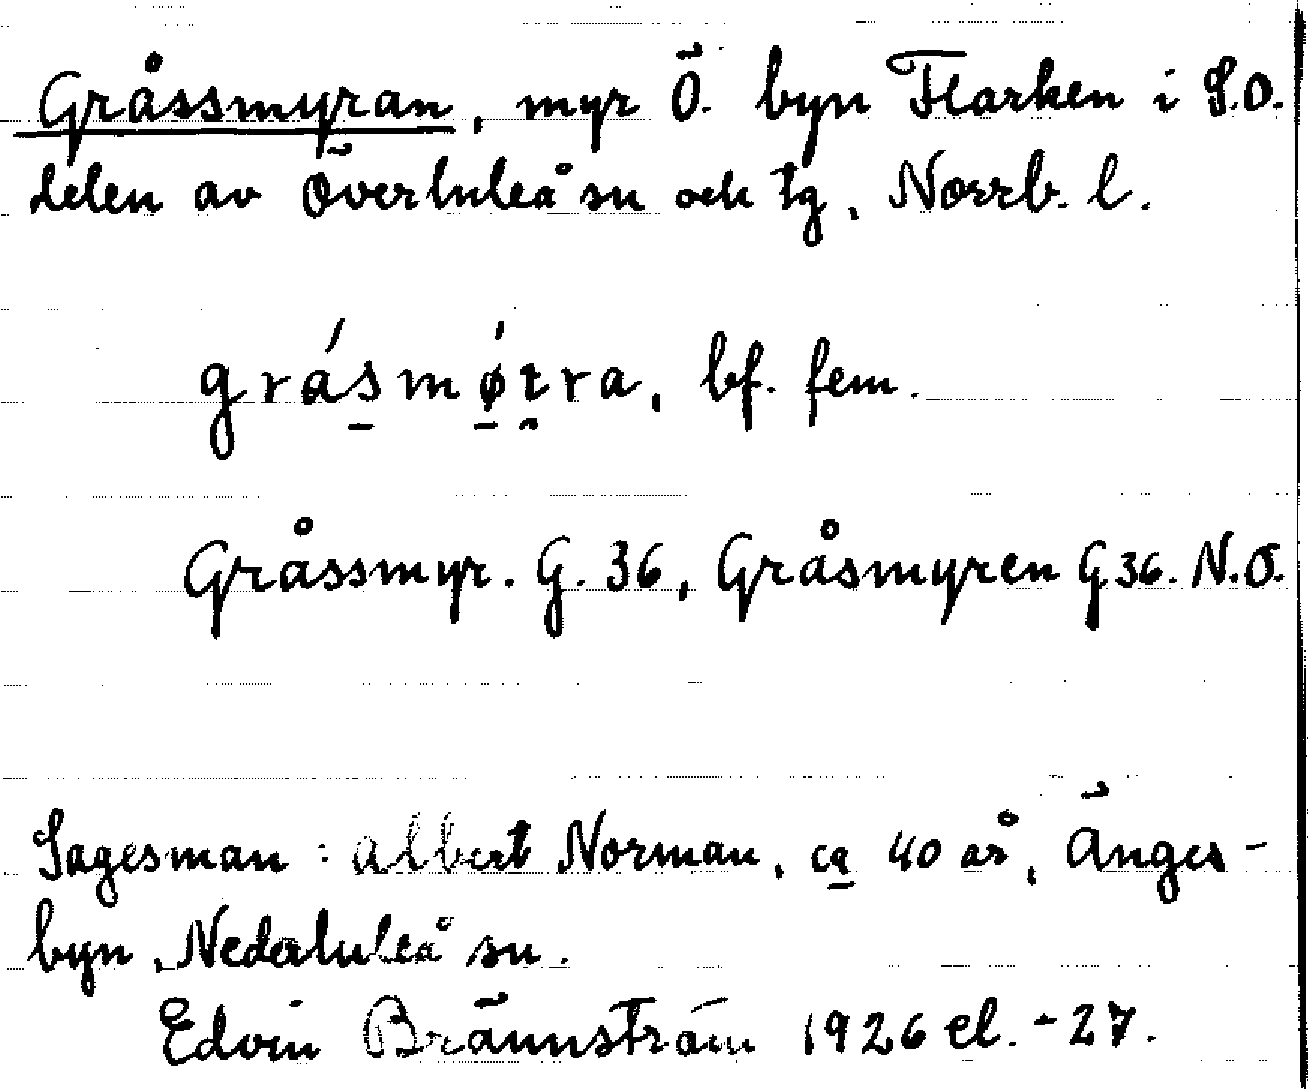 Gråssmyran, myr Ö. byn Flarken i S.O.
delen av Överluleå sn och tg, Norrb. l.
grásmǿtra, bf. fem.
Gråssmyr. G. 36, Gråsmyren G 36. N.Ö.
Sagesman: Albert Norman, ca 40 år, Änges-
byn, Nederluleå sn.
Edvin Brännström 1926 el. -27.